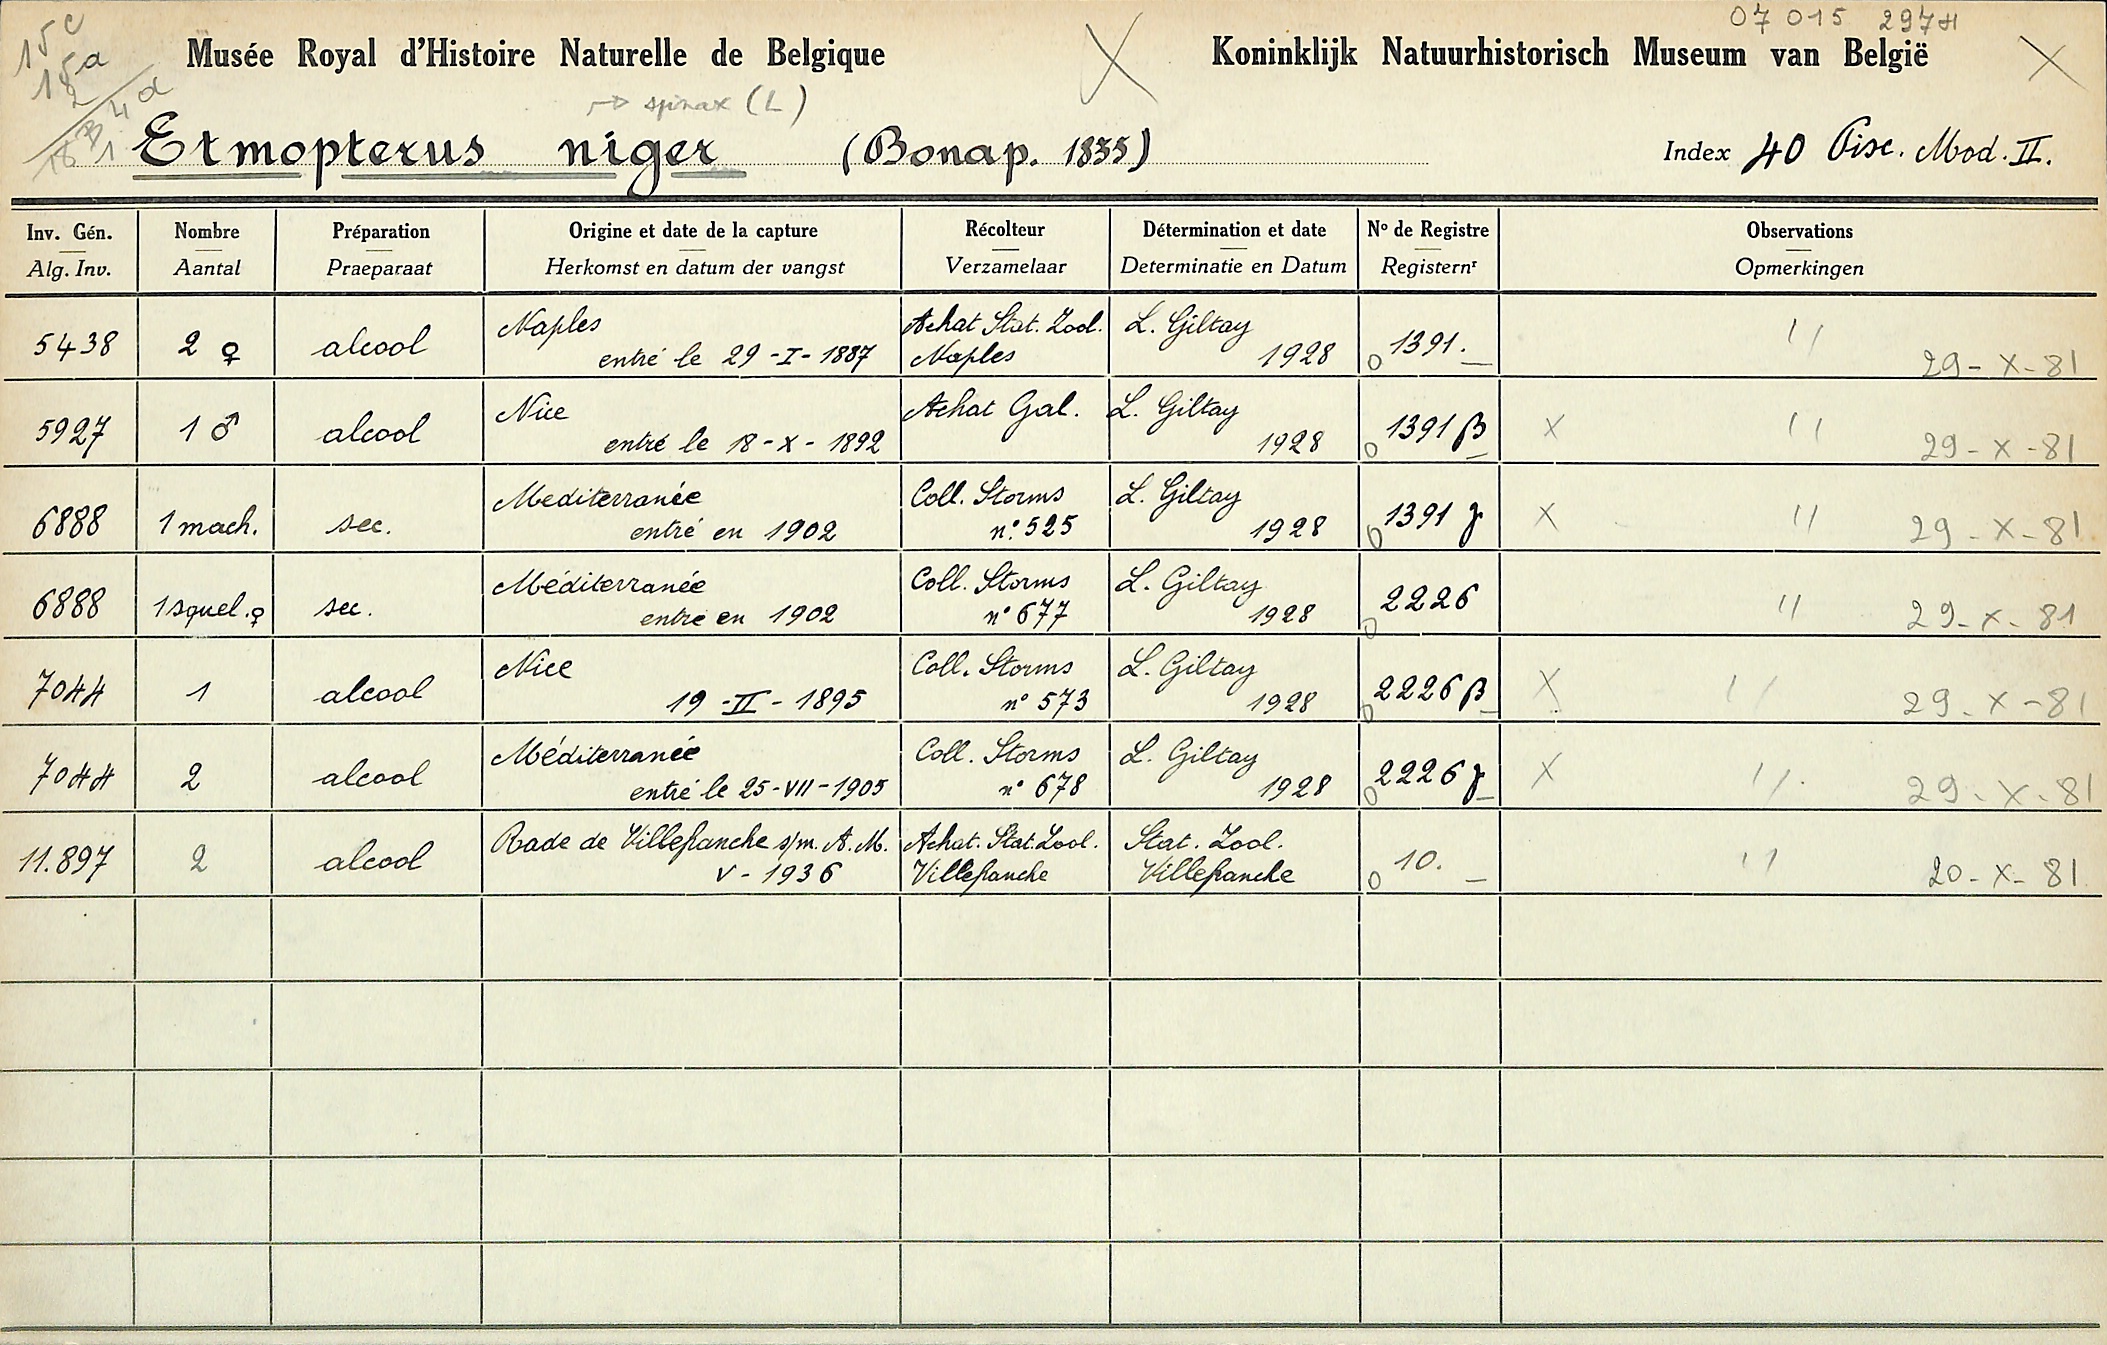 15c
15a
07 015 2974
Musée Royal d'Histoire Naturelle de Belgique X Koninklijk Natuurhistorisch Museum van België X
→ spinax (L)
Etmopterus niger (Bonap. 1835) Index 40 Pisc. Mod. II.
Inv. Gén. Nombre Préparation Origine et date de la capture Récolteur Détermination et date N° de Registre Observations
Alg. Inv. Aantal Praeparaat Herkomst en datum der vangst Verzamelaar Determinatie en Datum Registernr Opmerkingen
5438 2 ♀ alcool Naples Achat Stat. Zool. L. Giltay 1391. 〃
entré le 29-I-1887 Naples 1928 0 29-X-81
5927 1 ♂ alcool Nice Achat Gal. L. Giltay 1391 β X 〃
entré le 18-X-1892 1928 0 29-X-81
6888 1 mach. sec. Mediterranée Coll. Storms L. Giltay 1391 γ X 〃
entré en 1902 n° 525 1928 0 29-X-81
6888 1 squel. ♀ sec. Méditerranée Coll. Storms L. Giltay 2226 〃
entré en 1902 n° 677 1928 0 29-X-81
7044 1 alcool Nice Coll. Storms L. Giltay 2226 β X 〃
19-II-1895 n° 573 1928 0 29-X-81
7044 2 alcool Méditerranée Coll. Storms L. Giltay 2226 γ X 〃
entré le 25-VII-1905 n° 678 1928 0 29-X-81
11.897 2 alcool Rade de Villefranche s/m. A.M. Achat. Stat. Zool. Stat. Zool. 10. 〃
V-1936 Villefranche Villefranche 0 20-X-81